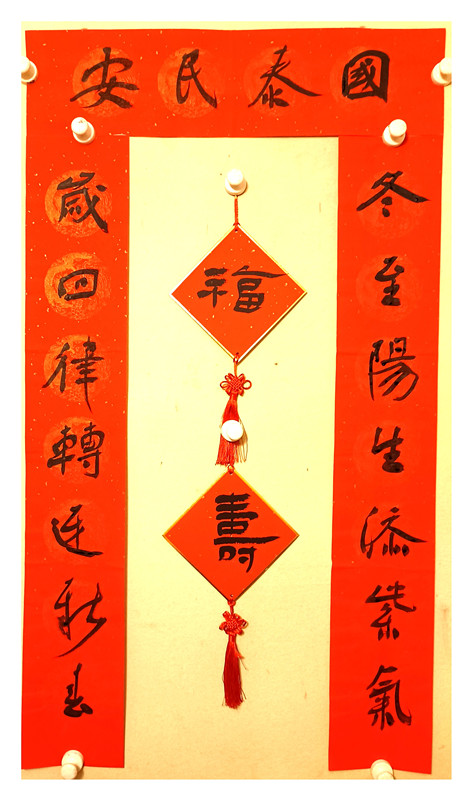 國泰民安
冬至陽生添紫氣
歲回律轉迎新春
福
壽